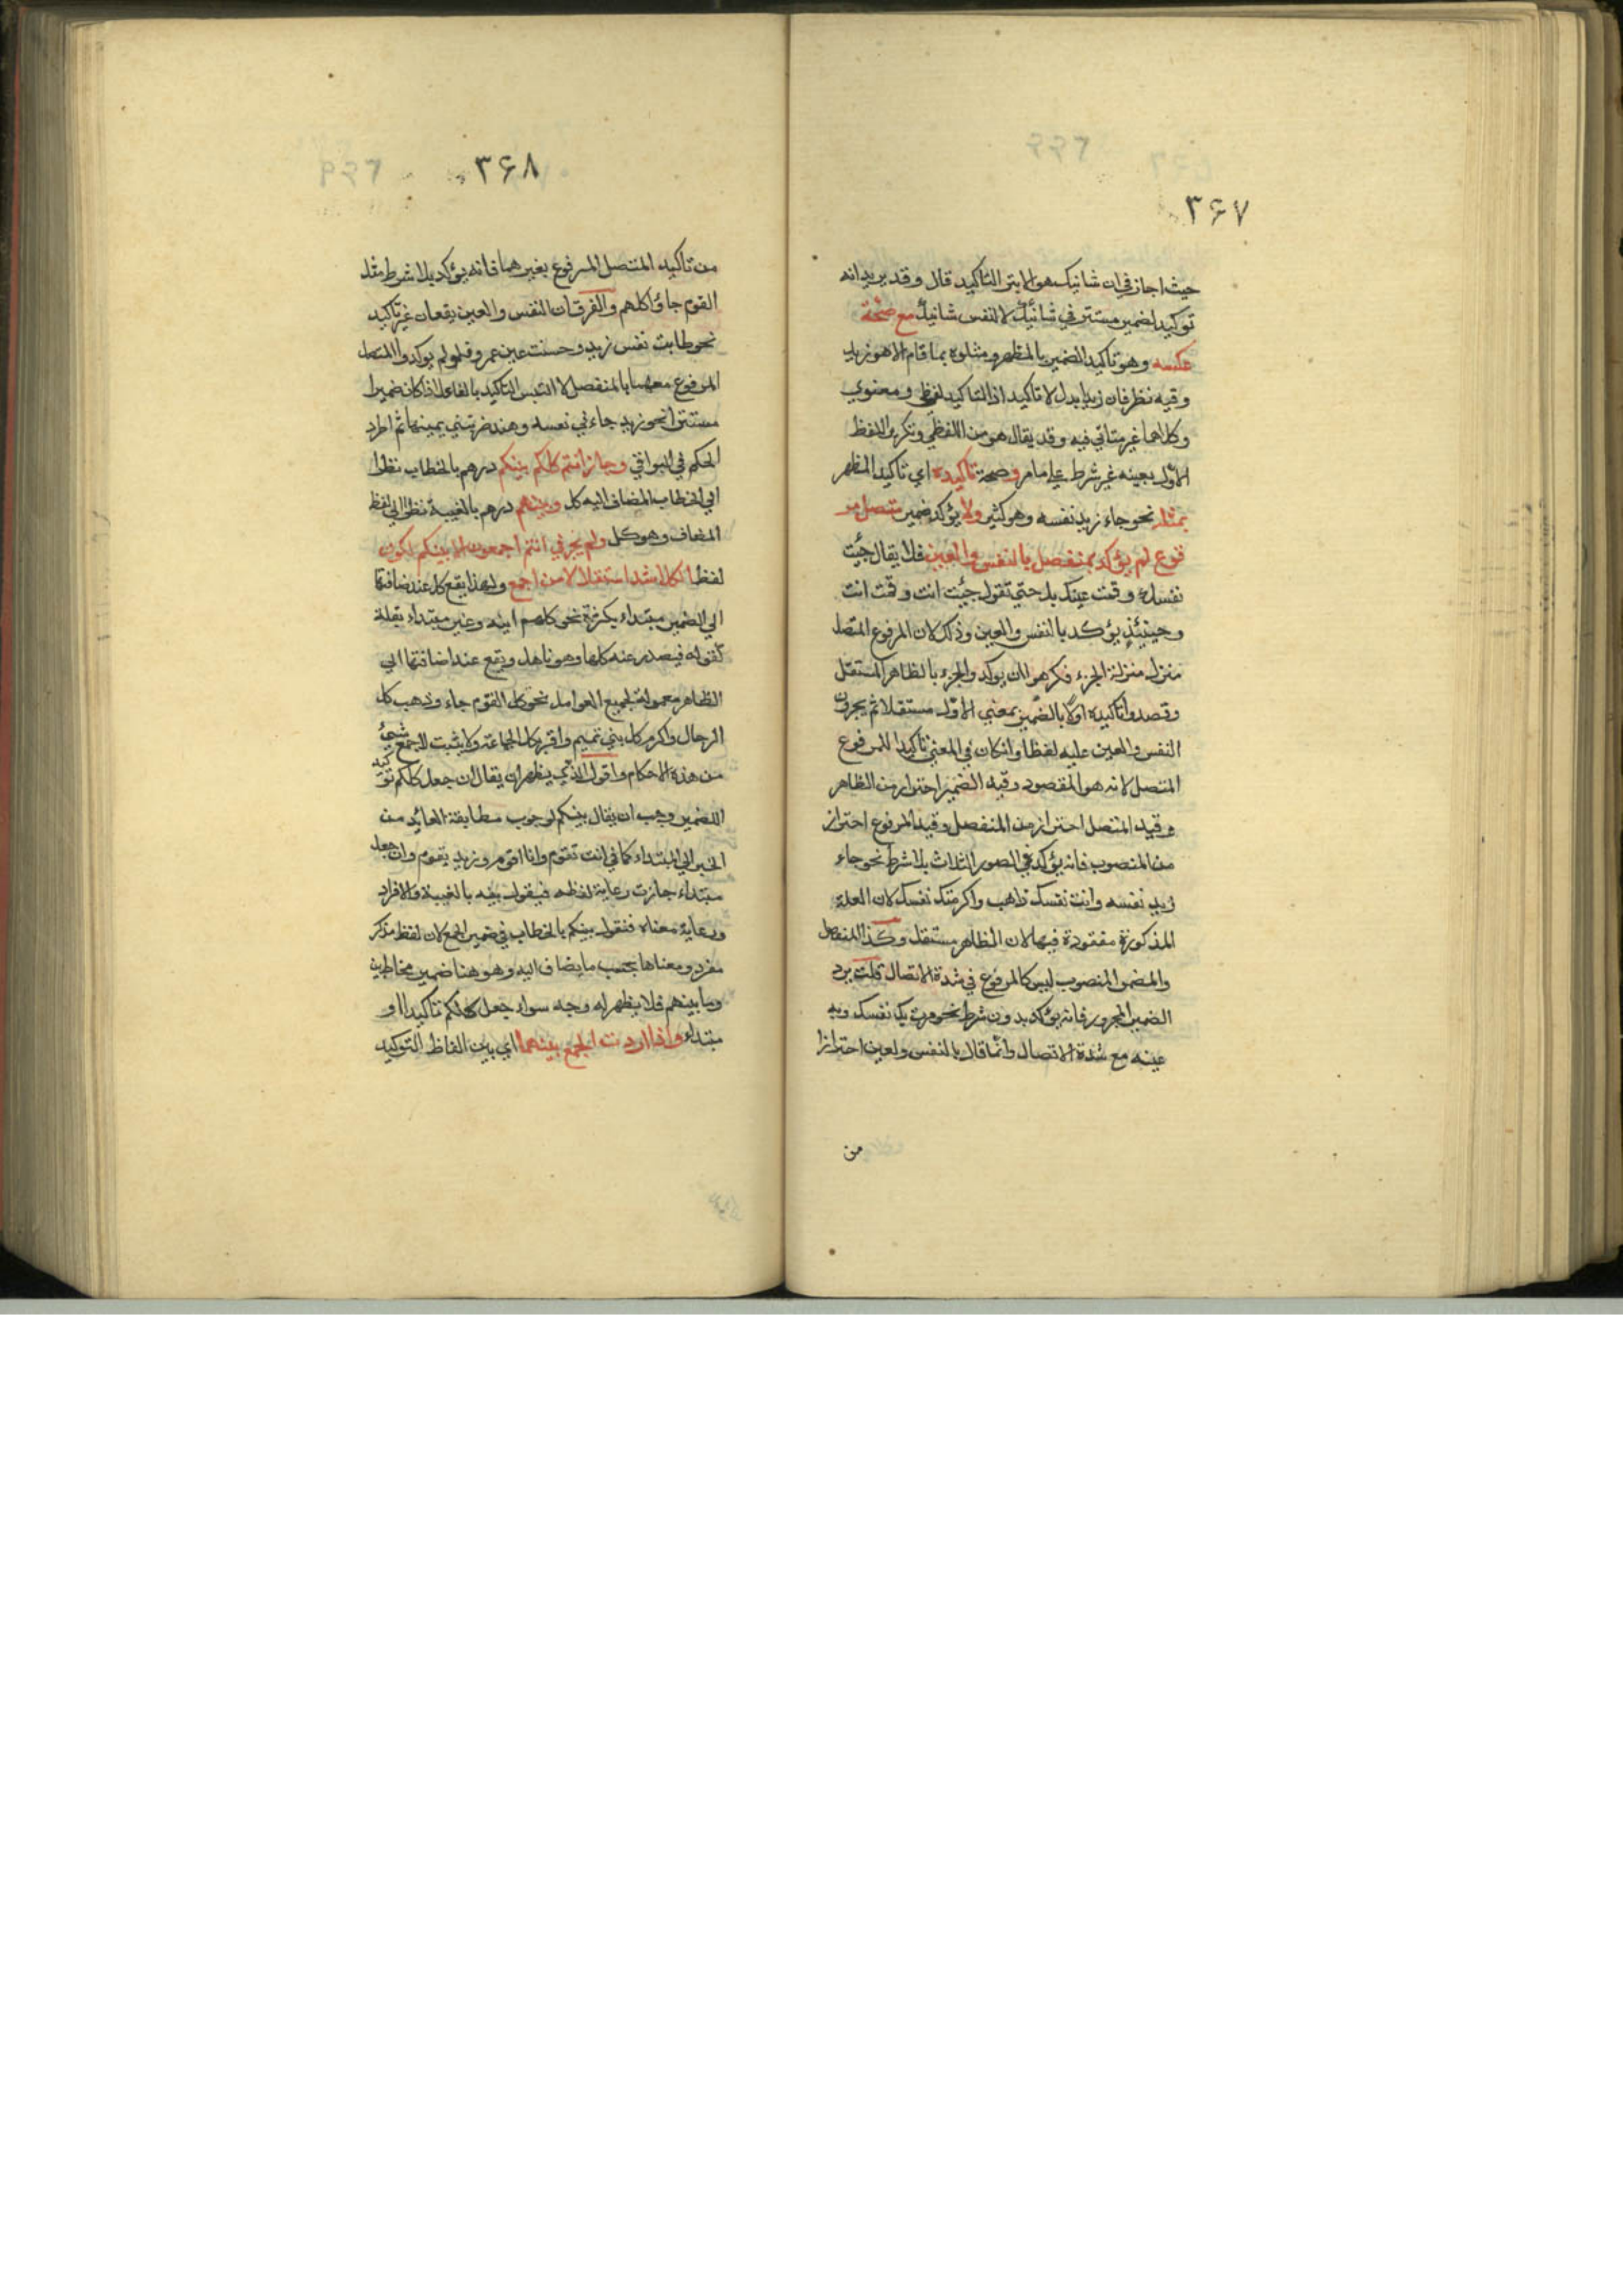 ۳۶۷
حيث اجاز في ان شانيك هو الابتر التاكيد قال وقد يريد انه
توكيد لضمير مستتر في شانيك لا لنفس شانيك مع صحة
عكسه وهو تاكيد الضمير بالمظهر ومثلوه بما قام الا هو زيد
وفيه نظر فان زيد بدل لا تاكيد اذ التاكيد لفظي ومعنوي
وكلاهما غير متاتي فيه وقد يقال هو من اللفظي وتكرير اللفظ
الاول بعينه غير شرط علي ما مر وصحة تاكيده اي تاكيد المظهر
بمثله نحو جاء زيد نفسه وهو كثير ولا يؤكد ضمير متصل مر
فوع لم يؤكد بمنفصل بالنفس والعين فلا يقال جئت
نفسك وقمت عينك بل حتي تقول جئت انت وقمت انت
وحينئذ يؤكد بالنفس والعين وذلك لان المرفوع المتصل
منزل منزلة الجزء فكرهوا ان يوكد والجزء بالظاهر المستقل
وقصدوا تاكيده اولا بالضمير بمعني الاول مستقلا ثم يجرون
النفس والعين عليه لفظا وان كان في المعني تاكيدا للمرفوع
المتصل لانه هو المقصود وقيد الضمير احتراز من الظاهر
وقيد المتصل احتراز من المنفصل وقيد المرفوع احتراز
من المنصوب فانه يؤكد في الصور الثلاث بلا شرط نحو جاء
زيد نفسه وانت نفسك ذاهب واكرمتك نفسك لان العلة
المذكورة مفقودة فيها لان المظاهر مستقل وكذا المنفصل
والمضمر المنصوب ليس كالمرفوع في شدة الاتصال قلت يرد
الضمير المجرور فانه يؤكد بدون شرط نحو مررت بك نفسك وبه
عينه مع شدة الاتصال وانما قال بالنفس والعين احترازا
من
۳۶۸
من تاكيد المتصل المرفوع بغيرهما فانه يؤكد بلا شرط مثل
القوم جاؤا كلهم والفرق ان النفس والعين يقعان غير تاكيد
نحو طابت نفس زيد وحسنت عين عمرو فلو لم يوكدوا المتصل
المرفوع معهما بالمنفصل لالتبس التاكيد بالفاعل اذا كان ضميرا
مستترا نحو زيد جاءني نفسه وهند ضربتني عينها ثم اطرد
الحكم في البواقي وجاز انتم كلكم بينكم درهم بالخطاب نظرا
الي الخطاب المضاف اليه كل وبينهم درهم بالغيبة نظرا الي لفظ
المضاف وهو كل ولم يجز في انتم اجمعون الا بينكم لكون
لفظ الكل اشد استقلالا من اجمع ولهذا يقع كل عند اضافتها
الي الضمير مبتداء بكثرة نحو كلهم ابنه وغير مبتداء بقلة
كقوله فيصدر عنه كلها وهو ناهل ويقع عند اضافتها الي
الظاهر معمولة لجميع العوامل نحو كل القوم جاء وذهب كل
الرجال واكرم كل بني تميم واقبر كل الجماعة ولا يثبت للجمع شيئ
من هذه الاحكام واقول الذي يظهر ان يقال ان جعل كلكم توكيد
للضمير وجب ان يقال بينكم لوجوب مطابقة العائد من
الخبر الي المبتداء كما في انت تقوم وانا اقوم وزيد يقوم وان جعل
مبتداء جازت رعاية لفظه فيقول بينه بالغيبة والافراد
ورعاية معناه فنقول بينكم بالخطاب في ضمير الجمع لان لفظ مذكر
مفرد ومعناها بحسب ما يضاف اليه وهو هنا ضمير مخاطبين
وما بينهم فلا يظهر له وجه سواء جعل كلكم تاكيدا او
مبتداء واذا اردت الجمع بينهما اي بين الفاظ التوكيد